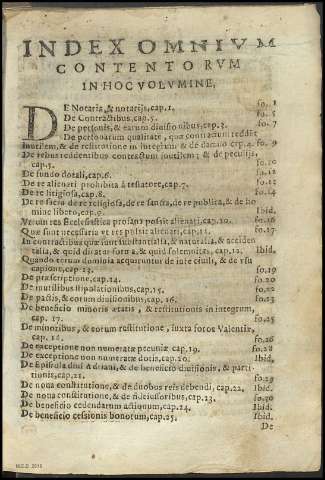 INDEX OMNIVM
CONTENTORVM
IN HOC VOLVMINE,
DE Notariis, & notariis, cap. 1. fo. 1
De Contractibus, cap. 5. fo. 5
De personis, & earum divisionibus, cap. 3. fo. 7
De personarum qualitate, quæ contractum reddit
inutilem, & de restitutione in integrum & de damno cap. 4. fo. 9
De rebus reddentibus contractum inutilem; & de peculijs,
cap. 5. fo. 10
De fundo dotali, cap. 6. fo. 12
De re alienari prohibita à testatore, cap. 7. fo. 13
De re litigiosa, cap. 8. fo. 14
De re sacra de re religiosa, de re sancta, de re publica, & de ho
mine libero, cap. 9. Ibid.
Vtrum res Ecclesiastica profana possit alienari, cap. 10. fo. 16
Quæ sint necessaria vt res possit alienari, cap. 11. fo. 17
In contractibus quæ sint substantialia, & naturalia, & acciden
talia, & quid dicatur forma, & quid solemnitas, cap. 12. Ibid.
Quando rerum dominia acquiruntur de iure ciuili, & de vsu
capione, cap. 13. fo. 19
De præscriptione, cap. 14. fo. 20
De inutilibus stipulationibus, cap. 15. fo. 22
De pactis, & eorum diuisionibus, cap. 16. fo. 23
De beneficio minoris ætatis, & restitutionis in integrum,
cap. 17. fo. 25
De minoribus, & eorum restitutione, iuxta foros Valentiæ,
cap. 18. fo. 26
De exceptione non numeratæ pecuniæ cap. 19. fo. 28
De exceptione non numeratæ dotis, cap. 20. Ibid.
De Epistola diui Adriani, & de beneficio diuisionis, & parti
tionis, cap. 21. fo. 29
De noua constitutione, & de duobus reis debendi, cap. 22. Ibid.
De noua constitutione, & de fideiussoribus, cap. 23. fo. 30
De beneficio cedendarum actionum, cap. 24. Ibid.
De beneficio cessionis bonorum, cap. 25. Ibid.
De